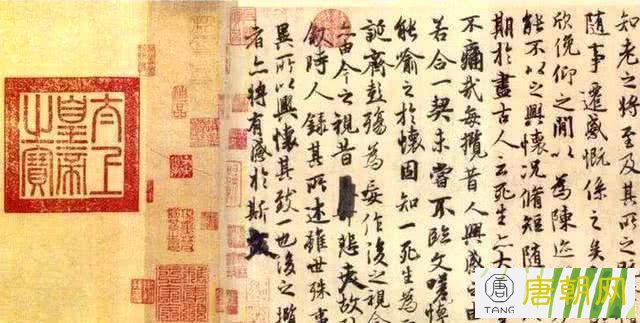 知老之将至及其所之
随事遷感慨係之矣
欣俛仰之間以為陳迹
能不以之興懷況脩短随
期於盡古人云死生亦大
不痛哉每攬昔人興感之由
若合一契未嘗不臨文嗟悼
能喻之於懷固知一死生為
誕齊彭殤為妄作後之視今
亦由今之視昔悲夫故
叙時人録其所述雖世殊事
異所以興懷其致一也後之攬
者亦将有感於斯文
太上
皇帝
之寶
唐
TANG
唐朝网